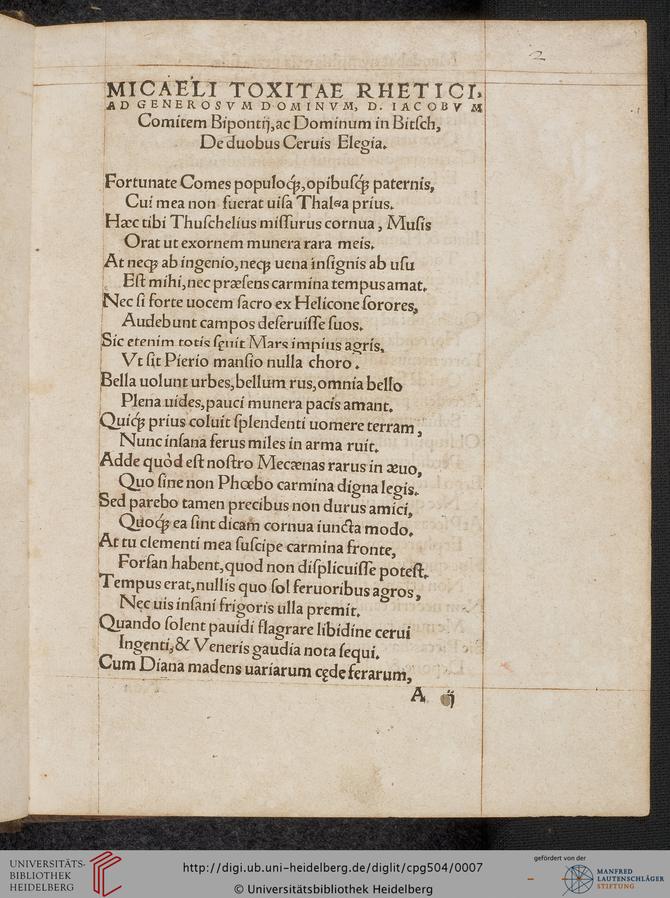 2
MICAELI TOXITAE RHETICI,
AD GENEROSVM DOMINVM, D. IACOBVM
Comitem Bipontij, ac Dominum in Bitſch,
De duobus Ceruis Elegia.
Fortunate Comes populoq́ꝫ, opibuſq́ꝫ paternis,
Cui mea non fuerat uiſa Thalia prius.
Hæc tibi Thuſchelius miſſurus cornua, Muſis
Orat ut exornem munera rara meis.
At neqꝫ ab ingenio, neqꝫ uena inſignis ab uſu
Eſt mihi, nec præſens carmina tempus amat.
Nec ſi forte uocem ſacro ex Helicone ſorores,
Audebunt campos deſeruiſſe ſuos.
Sic etenim totis ſęuit Mars impius agris,
Vt ſit Pierio manſio nulla choro.
Bella uolunt urbes, bellum rus, omnia bello
Plena uides, pauci munera pacis amant.
Quiq́ꝫ prius coluit ſplendenti uomere terram,
Nunc inſana ferus miles in arma ruit.
Adde quòd eſt noſtro Mecænas rarus in æuo,
Quo ſine non Phœbo carmina digna legis.
Sed parebo tamen precibus non durus amici,
Quoq́ꝫ ea ſint dicam cornua iuncta modo.
At tu clementi mea ſuſcipe carmina fronte,
Forſan habent, quod non diſplicuiſſe poteſt.
Tempus erat, nullis quo ſol feruoribus agros,
Nec uis inſani frigoris ulla premit.
Quando ſolent pauidi flagrare libidine cerui
Ingenti, & Veneris gaudia nota ſequi.
Cum Diana madens uariarum cęde ferarum,
A ij
UNIVERSITÄTS-
BIBLIOTHEK
HEIDELBERG
http://digi.ub.uni-heidelberg.de/diglit/cpg504/0007
© Universitätsbibliothek Heidelberg
gefördert von der
MANFRED
LAUTENSCHLÄGER
STIFTUNG